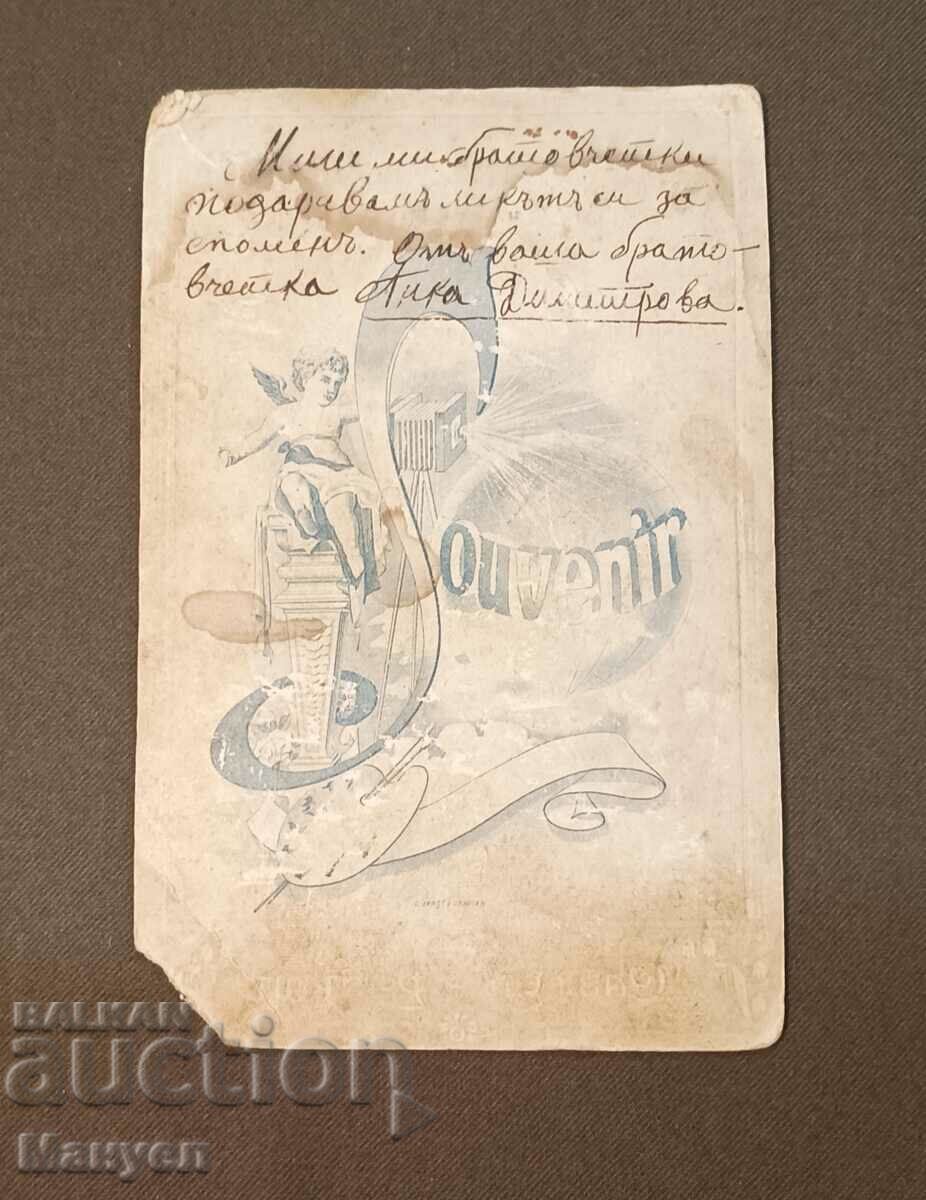 Мили ми братовчетки
подарявамъ ликътъ си за
споменъ. Отъ ваша брато-
вчетка Анка Димитрова.
Souvenir
BALKAN
auction
Мануел